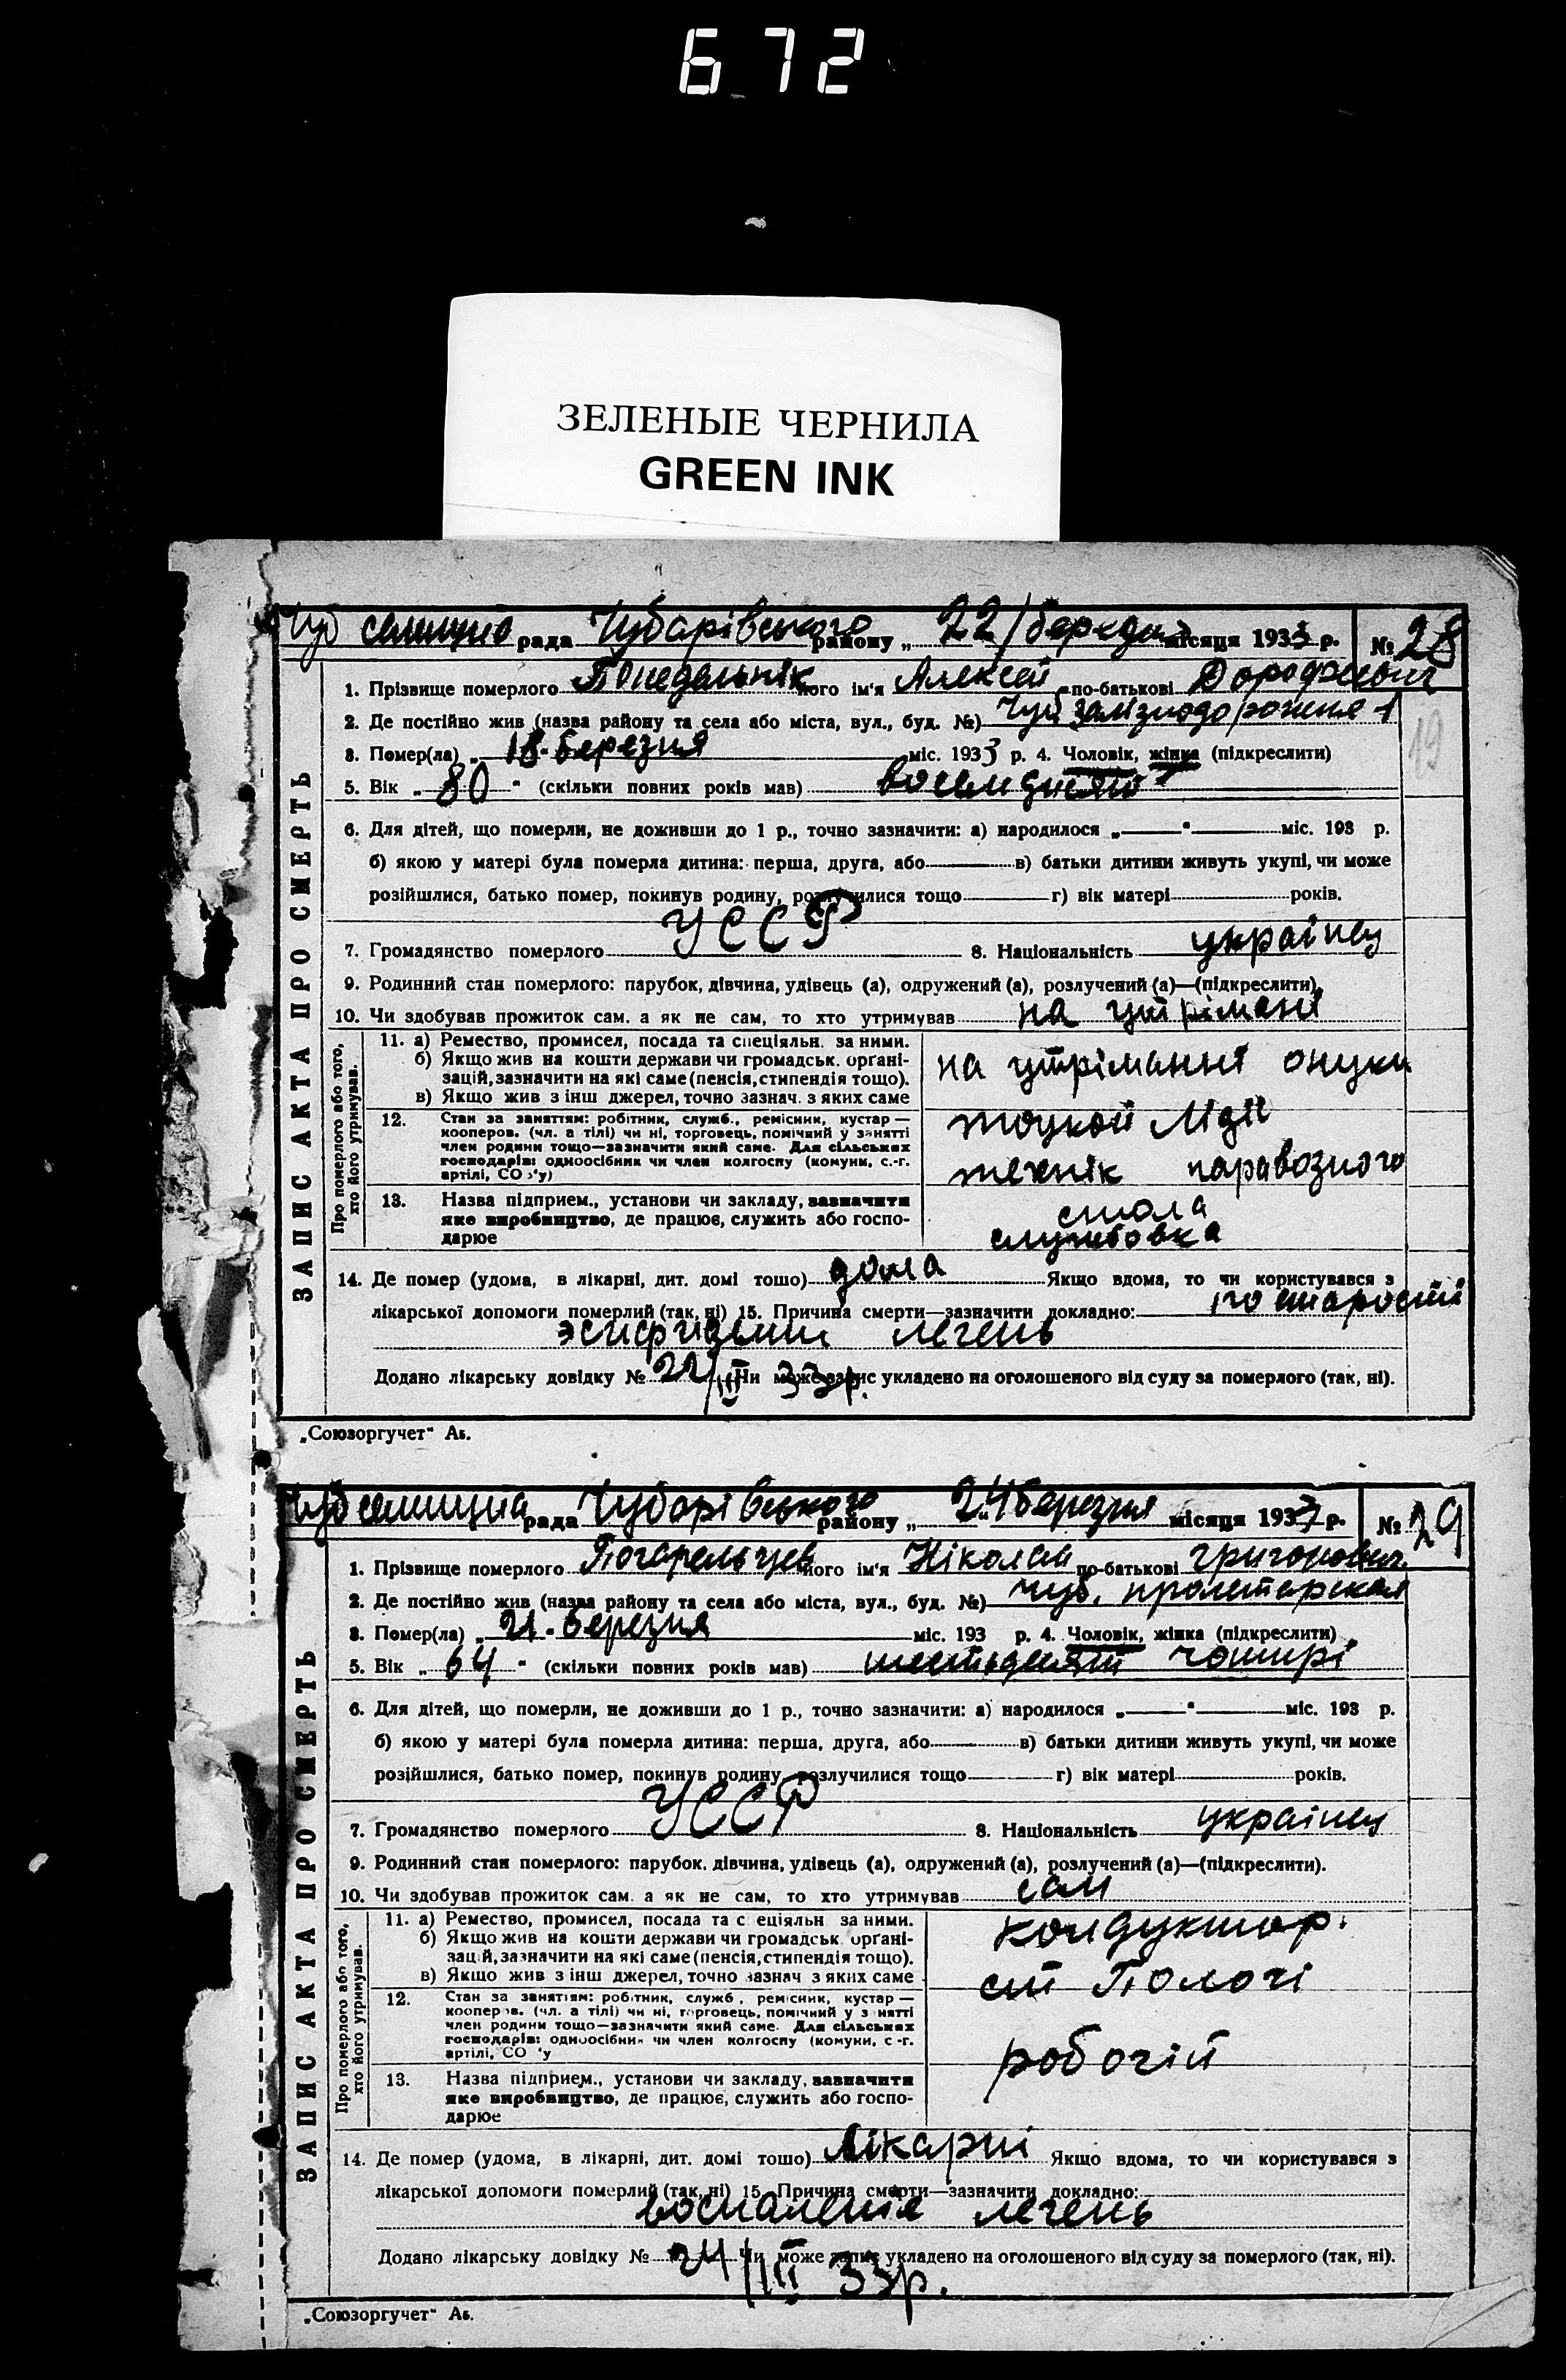 672
ЗЕЛЕНЫЕ ЧЕРНИЛА
GREEN INK
ЗАПИС АКТА ПРО СМЕРТЬ
Чуб селищна рада Чубарівського району „ 22/березня місяця 1933 р. № 28
1. Прізвище померлого Понедельнік його ім'я Алексей по-батькові Дорофеевич
2. Де постійно жив (назва району та села або міста, вул., буд. №) Чуб залізнодорожня 1
19
3. Помер(ла) „ 18 березня міс. 1933 р. 4. Чоловік, жінка (підкреслити)
5. Вік „ 80 " (скільки повних років мав) восемдисять
6. Для дітей, що померли, не доживши до 1 р., точно зазначити: а) народилося „ " міс. 193 р.
б) якою у матері була померла дитина: перша, друга, або в) батьки дитини живуть укупі, чи може
розійшлися, батько помер, покинув родину, розлучилися тощо г) вік матері років.
7. Громадянство померлого УССР 8. Національність українец
9. Родинний стан померлого: парубок, дівчина, удівець (а), одружений (а), розлучений (а)—(підкреслити)
10. Чи здобував прожиток сам. а як не сам, то хто утримував на утрімані
Про померлого або того, хто його утримував.
11. а) Ремество, промисел, посада та спеціяльн. за ними.
б) Якщо жив на кошти держави чи громадськ. органі-
зацій, зазначити на які саме (пенсія, стипендія тощо).
в) Якщо жив з інш джерел, точно зазнач. з яких саме
на утріманні онуки
12. Стан за заняттям: робітник, служб., ремісник, кустар —
кооперов. (чл. а тілі) чи ні, торговець, помічний у занятті
член родини тощо—зазначити який саме. Для сільських
господарів: одноосібник чи член колгоспу (комуни, с.-г.
артілі, СО 'у)
Лідіі
технік паравозного
13. Назва підприєм., установи чи закладу, зазначити
яке виробництво, де працює, служить або госпо-
дарює
стола
службовка
14. Де помер (удома, в лікарні, дит. домі тошо) дома Якщо вдома, то чи користувався з
лікарської допомоги померлий (так, ні) 15. Причина смерти—зазначити докладно: по старости
легень
Додано лікарську довідку № 22/III 33р. Чи може запис укладено на оголошеного від суду за померлого (так, ні).
„Союзоргучет" Аь.
ЗАПИС АКТА ПРО СМЕРТЬ
Чуб селищна рада Чубарівського району „ 24 березня місяця 1933 р. № 29
1. Прізвище померлого Погорельцев його ім'я Ніколай по-батькові Григорович
2. Де постійно жив (назва району та села або міста, вул., буд. №) чуб. пролетарская
3. Помер(ла) „ 21 березня міс. 193 р. 4. Чоловік, жінка (підкреслити)
5. Вік „ 64 " (скільки повних років мав) шестьдесят чотирі
6. Для дітей, що померли, не доживши до 1 р., точно зазначити: а) народилося „ " міс. 193 р.
б) якою у матері була померла дитина: перша, друга, або в) батьки дитини живуть укупі, чи може
розійшлися, батько помер, покинув родину, розлучилися тощо г) вік матері років.
7. Громадянство померлого УССР 8. Національність українец
9. Родинний стан померлого: парубок, дівчина, удівець (а), одружений (а), розлучений (а)—(підкреслити).
10. Чи здобував прожиток сам. а як не сам, то хто утримував сам
Про померлого або того, хто його утримував.
11. а) Ремество, промисел, посада та с еціяльн за ними.
б) Якщо жив на кошти держави чи громадськ. органі-
зацій, зазначити на які саме (пенсія, стипендія тощо).
в) Якщо жив з інш джерел, точно зазнач з яких саме
кондуктор.
ст Пологі
12. Стан за заняттям: робітник, служб., ремісник, кустар —
кооперов. (чл. а тілі) чи ні, торговець, помічний у з нятті
член родини тощо—зазначити який саме. Для сільських
господарів: одноосібник чи член колгоспу (комуни, с -г.
артілі, СО 'у
робочій
13. Назва підприєм., установи чи закладу, зазначити
яке виробництво, де працює, служить або госпо-
дарює
14. Де помер (удома, в лікарні, дит. домі тошо) лікарні Якщо вдома, то чи користувався з
лікарської допомоги померлий (так, ні) 15. Причина смерти—зазначити докладно:
воспаленіе легень
Додано лікарську довідку № 24/III 33р. Чи може запис укладено на оголошеного від суду за померлого (так, ні).
„Союзоргучет" Аь.